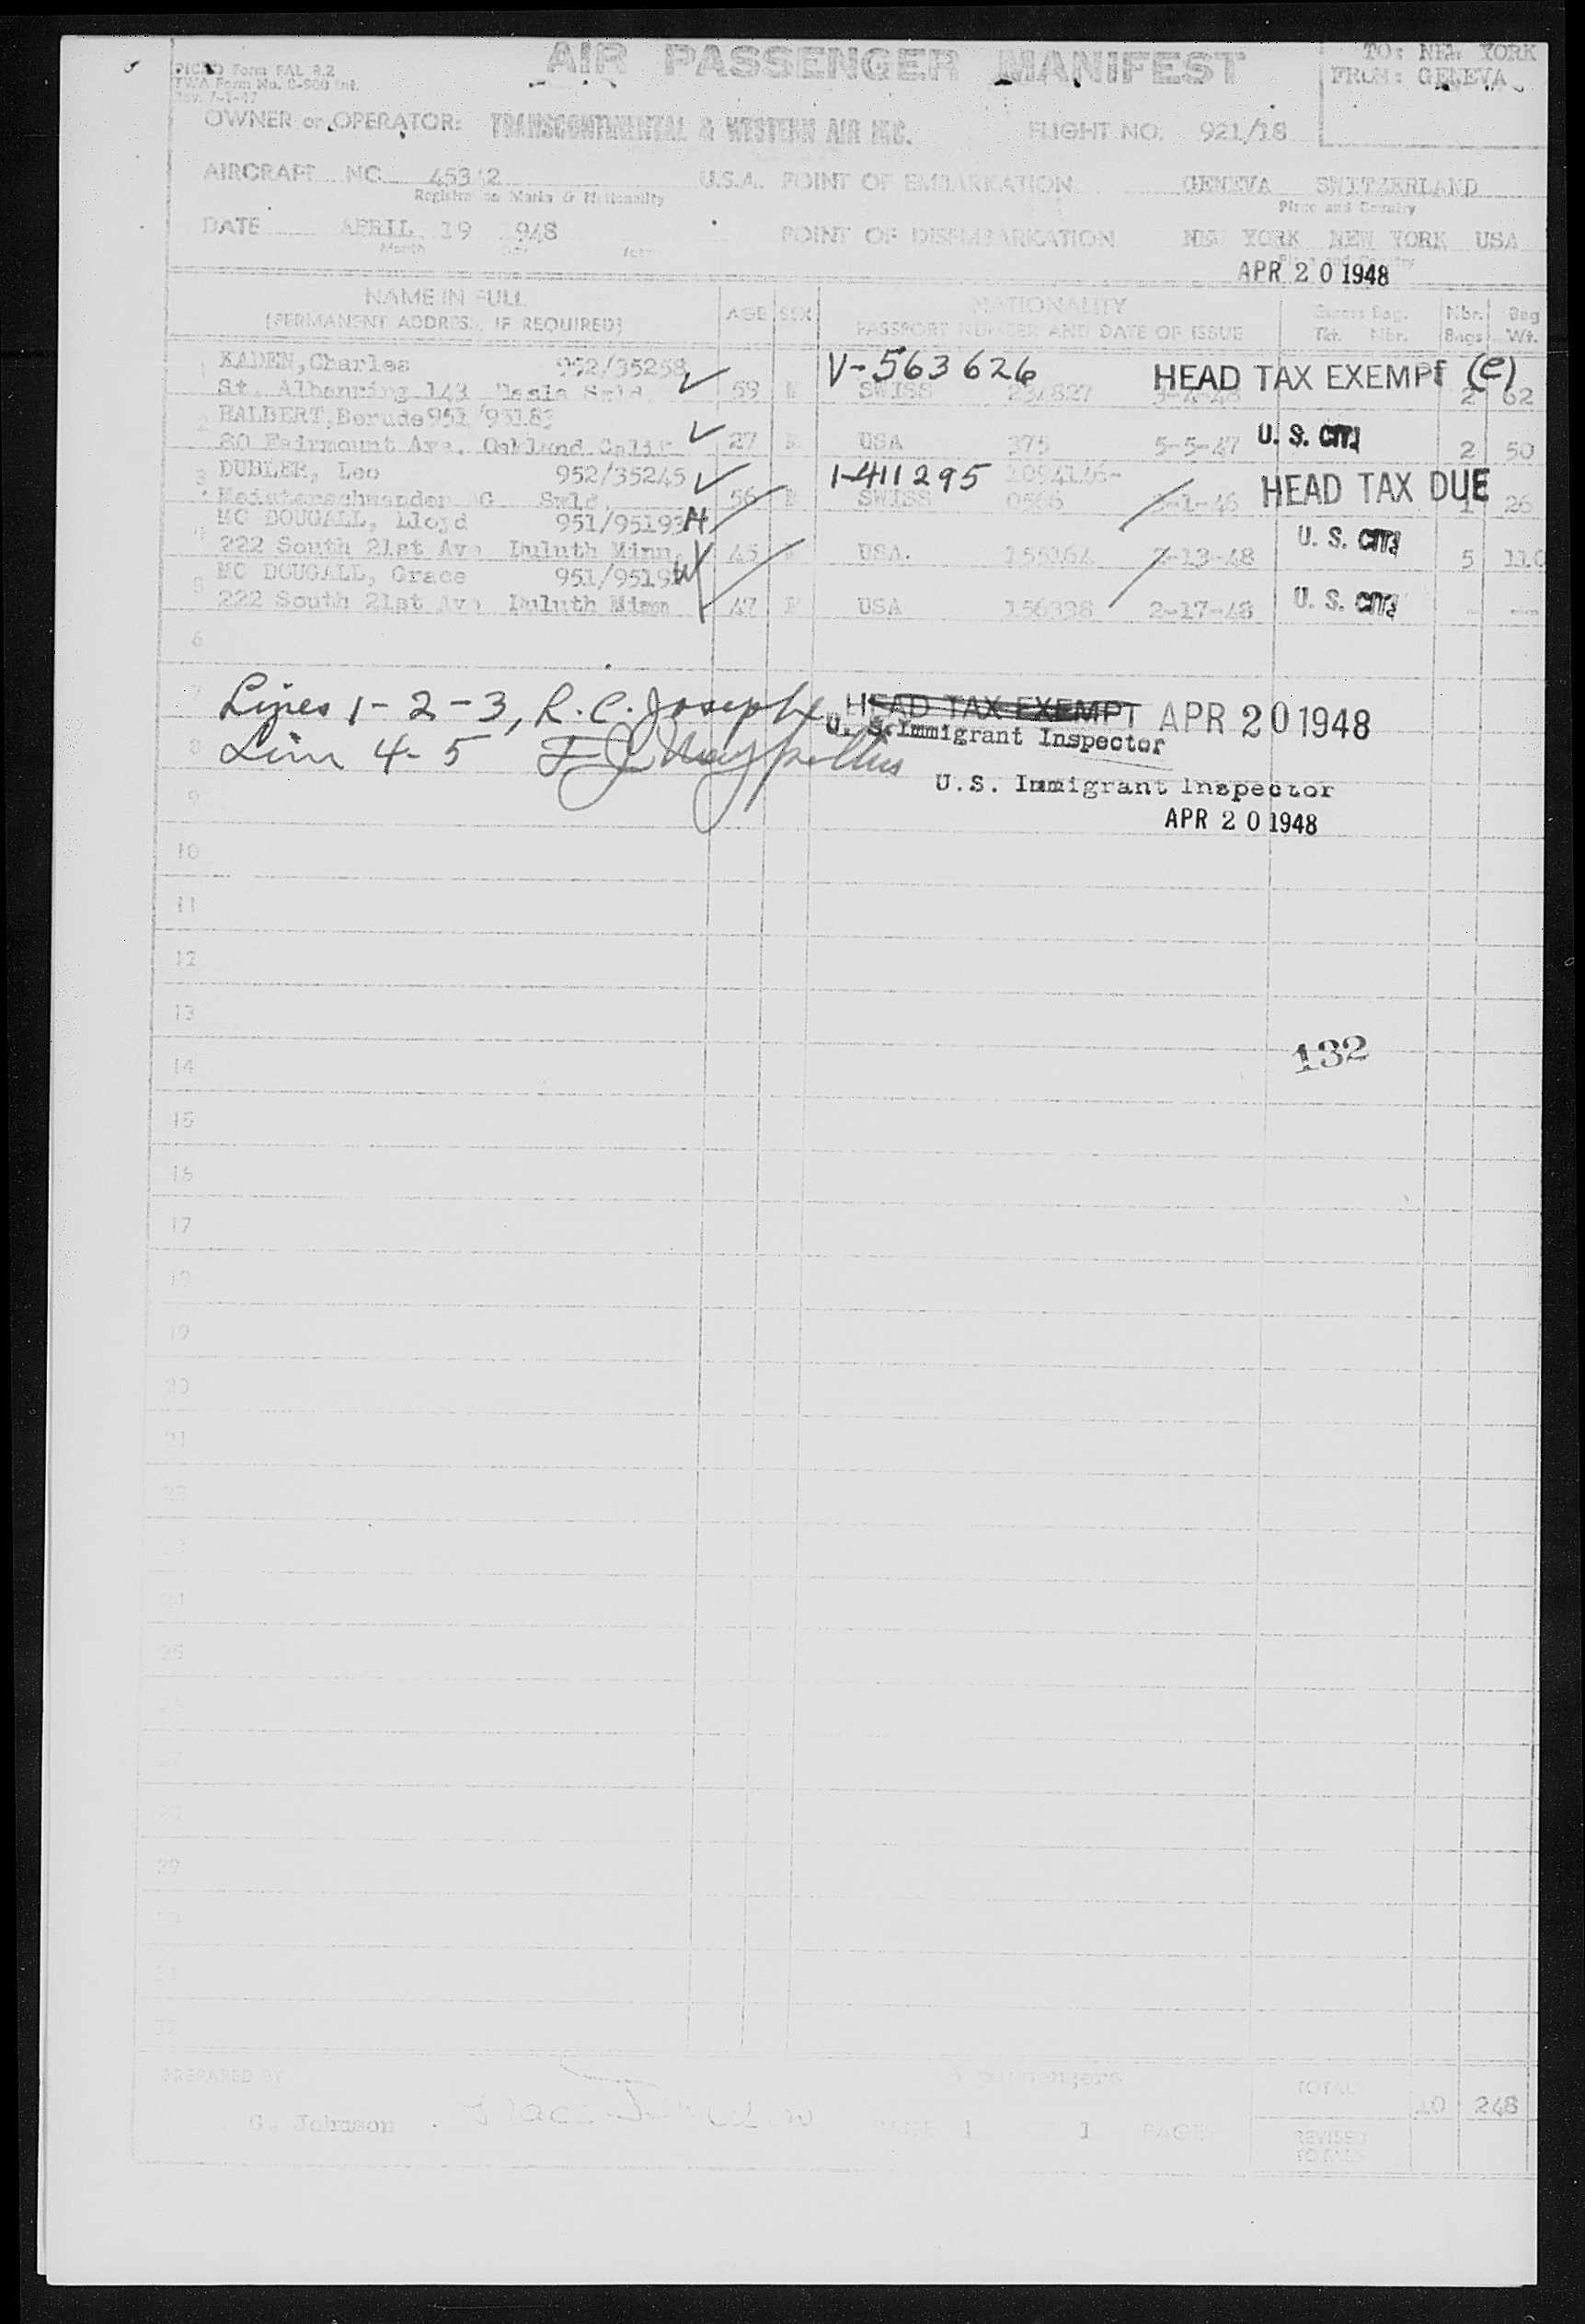 AIR PASSENGER MANIFEST
TO: NEW YORK
FROM: GENEVA
PICAO Form FAL 8.2
TWA Form No. 0-960 Int.
Rev. 7-1-47
OWNER or OPERATOR: TRANSCONTINENTAL & WESTERN AIR INC. FLIGHT NO. 921/18
AIRCRAFT NO 453 2 U.S.A. POINT OF EMBARKATION GENEVA SWITZERLAND
Registration Marks & Nationality Place and Country
DATE APRIL 19 948 POINT OF DISEMBARKATION NEW YORK NEW YORK USA
Month Day Year Place and Country
APR 20 1948
NAME IN FULL AGE SEX NATIONALITY Excess Bag. Nbr. Bag
(PERMANENT ADDRESS, IF REQUIRED) PASSPORT NUMBER AND DATE OF ISSUE Tkt. Nbr. Bags Wt.
1 KADEN, Charles 952/35258 V-563626 HEAD TAX EXEMPT (e)
St. Albanring 143 Basle Swld. 59 M SWISS 3-4-48 2 62
2 HALBERT, Berude 951/95183
80 Fairmount Ave. Oakland Calif 27 M USA 375 5-5-47 U. S. CIT. 2 50
3 DUBLER, Leo 952/35245 I-411295 1094146- HEAD TAX DUE
Meisterschwanden AG Swld 56 M SWISS 0566 -1-46 1 26
4 MC DOUGALL, Lloyd 951/95193 H U. S. CIT.
222 South 21st Ave Duluth Minn. 45 M USA. 155364 2-13-48 5 110
5 MC DOUGALL, Grace 951/9519 W U. S. CIT.
222 South 21st Ave Duluth Minn 47 F USA 156338 2-17-48 - --
6
7 Lines 1-2-3, R. C. Joseph HEAD TAX EXEMPT APR 20 1948
U. S. Immigrant Inspector
8 Line 4-5
9 U.S. Immigrant Inspector
APR 20 1948
10
11
12
13
132
14
15
16
17
18
19
20
21
22
23
24
25
26
27
28
29
30
31
32
PREPARED BY 5 passengers TOTAL 10 248
G. Johnson PAGE 1 1 PAGES REVISED
TOTALS